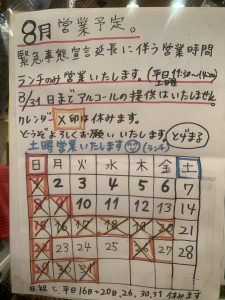 8月営業予定。
緊急事態宣言延長に伴う営業時間
ランチのみ営業いたします。(平日11:30〜14:00)
8/31日までアルコールの提供はいたしません。
カレンダー X 印は休みます。
どうぞよろしくお願いいたします
土曜営業いたします(ランチ)
日 月 火 水 木 金 土
1 2 3 4 5 6 7
8 9 10 11 12 13 14
15 16 17 18 19 20 21
22 23 24 25 26 27 28
29 30 31
日,祝と平日16日〜20日,26,30,31休みます